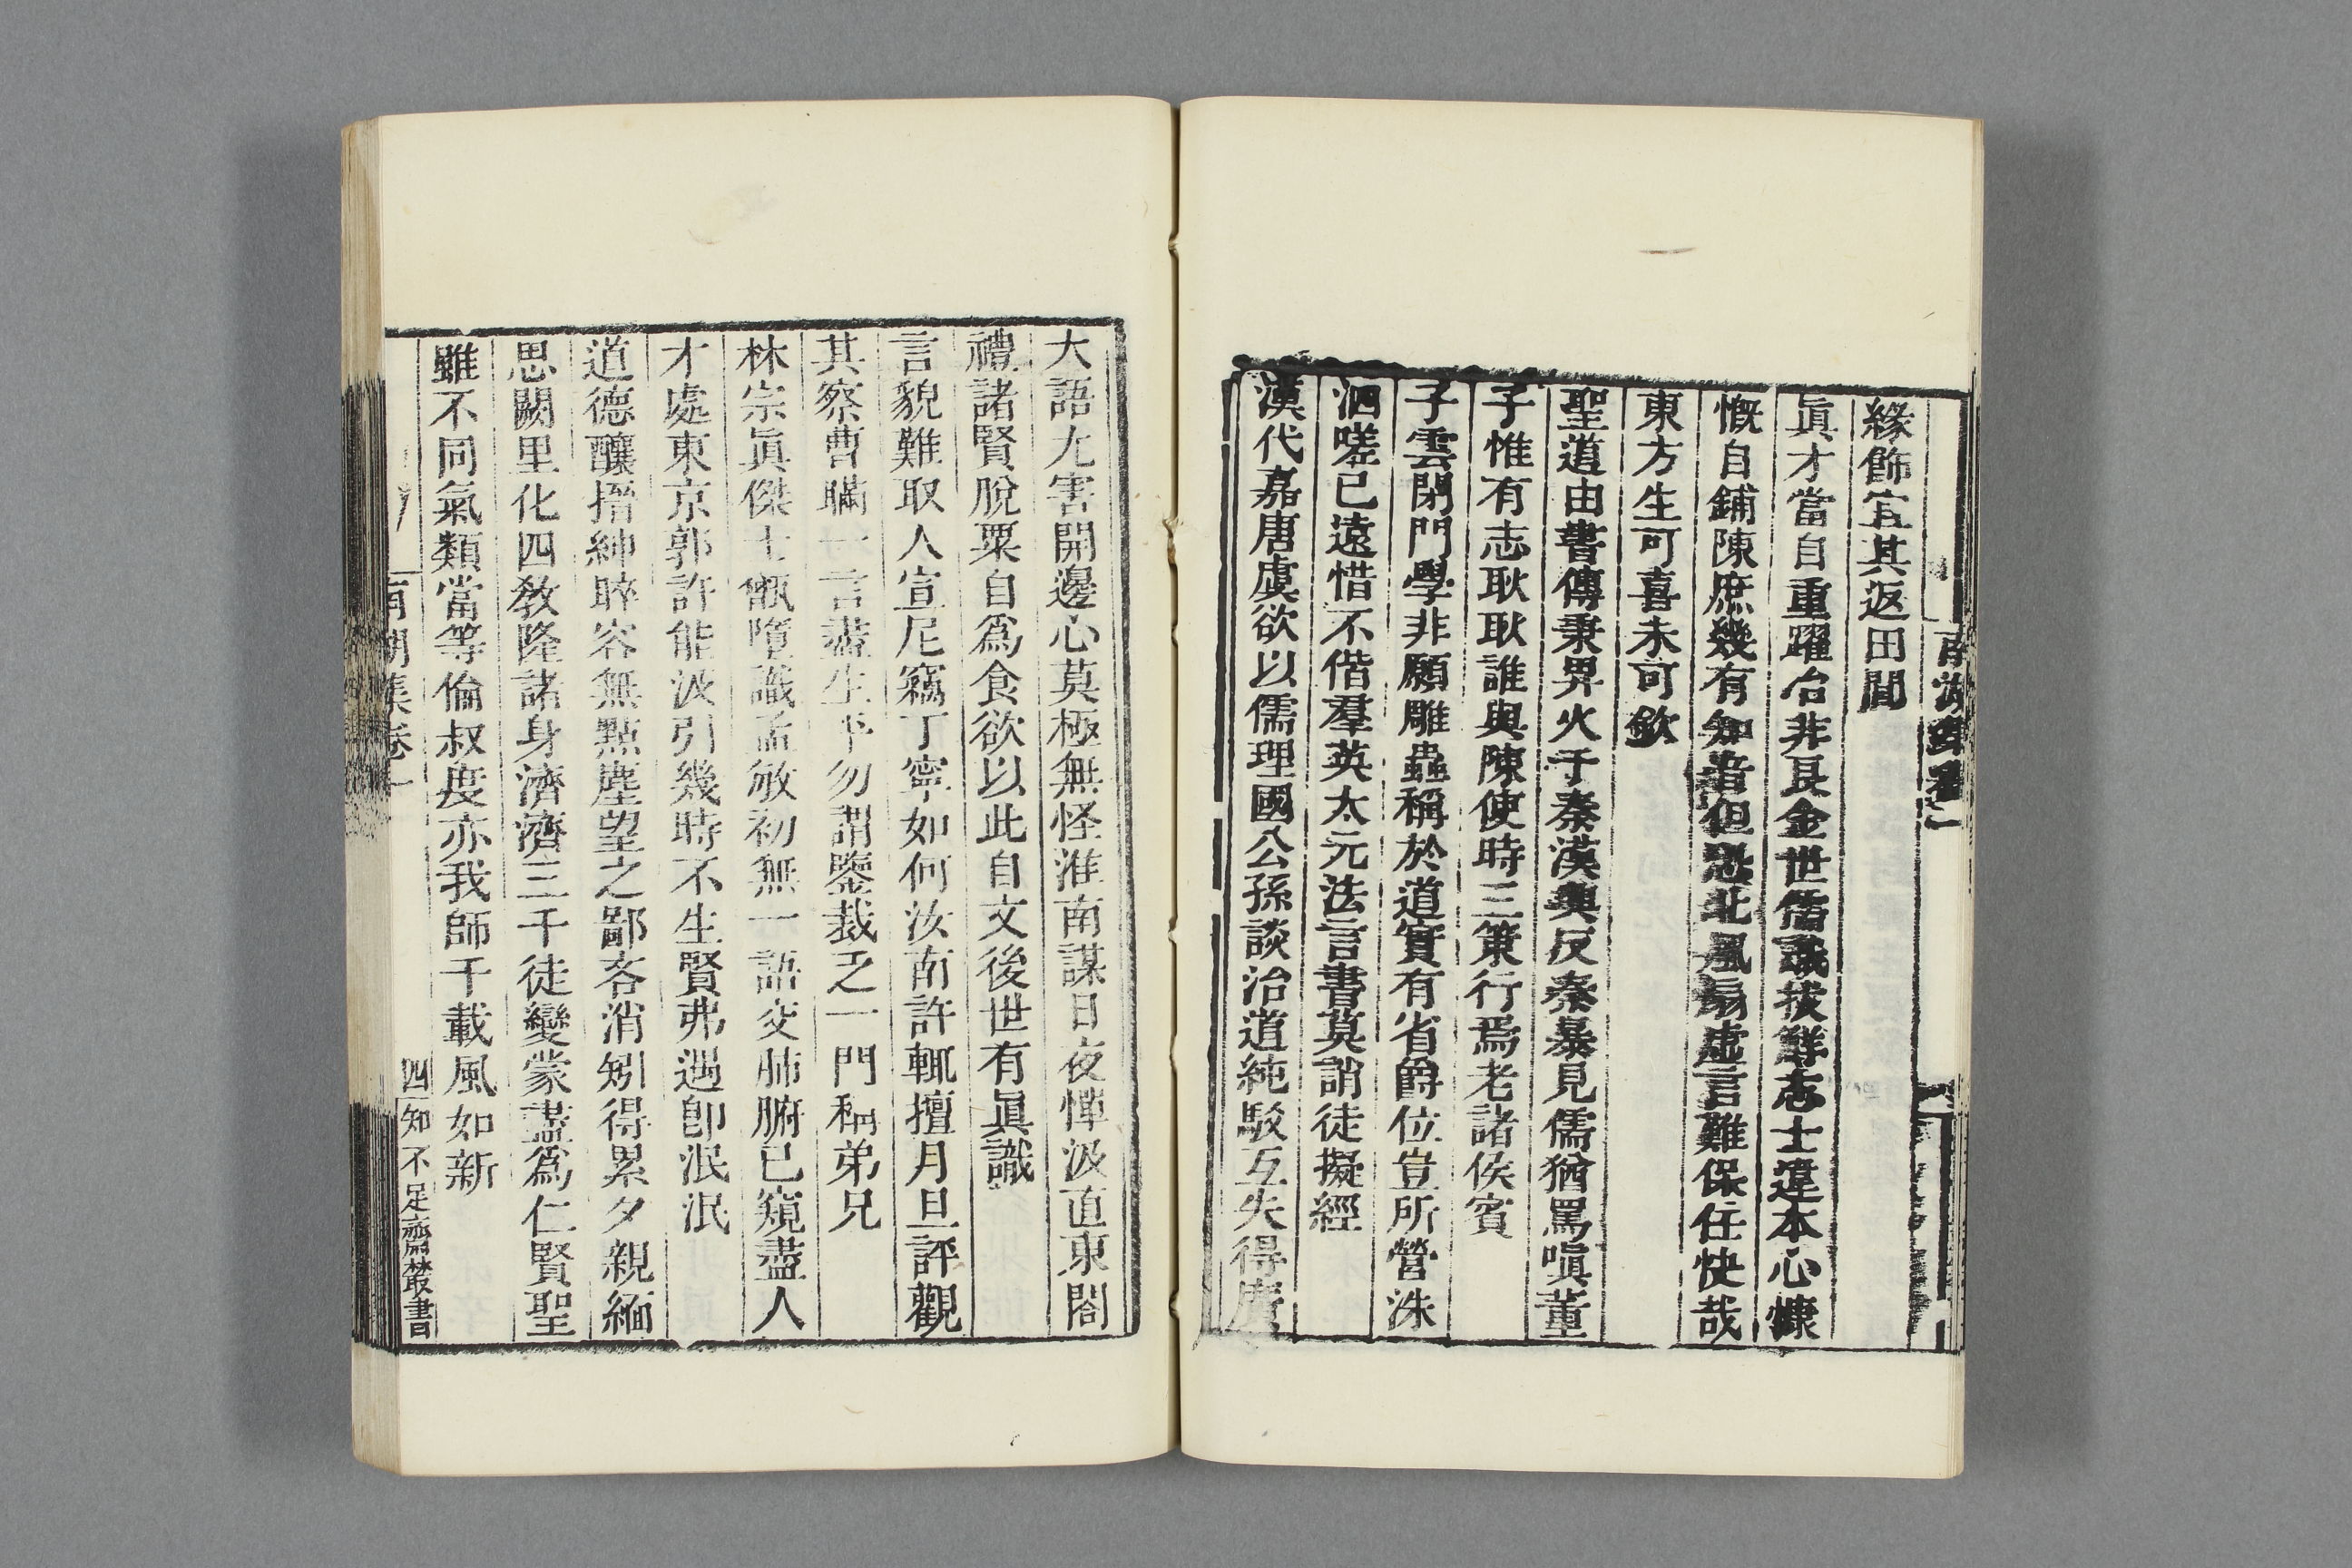 南湖集卷一
緣飾宜其返田間
眞才當自重躍冶非良金世儒識拔鮮志士違本心慷
慨自鋪陳庶幾有知者但恐北風扇虛言難保任快哉
東方生可喜未可欽
聖道由書傳秉畀火于秦漢興反秦暴見儒猶罵嗔董
子惟有志耿耿誰與陳使時三策行焉老諸侯賓
子雲閉門學非願雕蟲稱於道實有省爵位豈所營洙
泗嗟已遠惜不偕羣英太元法言書莫誚徒擬經
漢代嘉唐虞欲以儒理國公孫談治道純駁互失得廣
大語尢害開邊心莫極無怪淮南謀日夜憚汲直東閤
禮諸賢脫粟自爲食欲以此自文後世有眞識
言貌難取人宣尼竊丁寧如何汝南許輒擅月旦評觀
其察曹瞞一言盡生平勿謂鑒裁乏一門稱弟兄
林宗眞傑士甑墮識孟敏初無一語交肺腑已窺盡人
才處東京郭許能汲引幾時不生賢弗遇卽泯泯
道德釀搢紳睟容無點塵望之鄙吝消矧得累夕親緬
思闕里化四敎隆諸身濟濟三千徒變蒙盡爲仁賢聖
雖不同氣類當等倫叔度亦我師千載風如新
南湖集卷一
四
知不足齋叢書